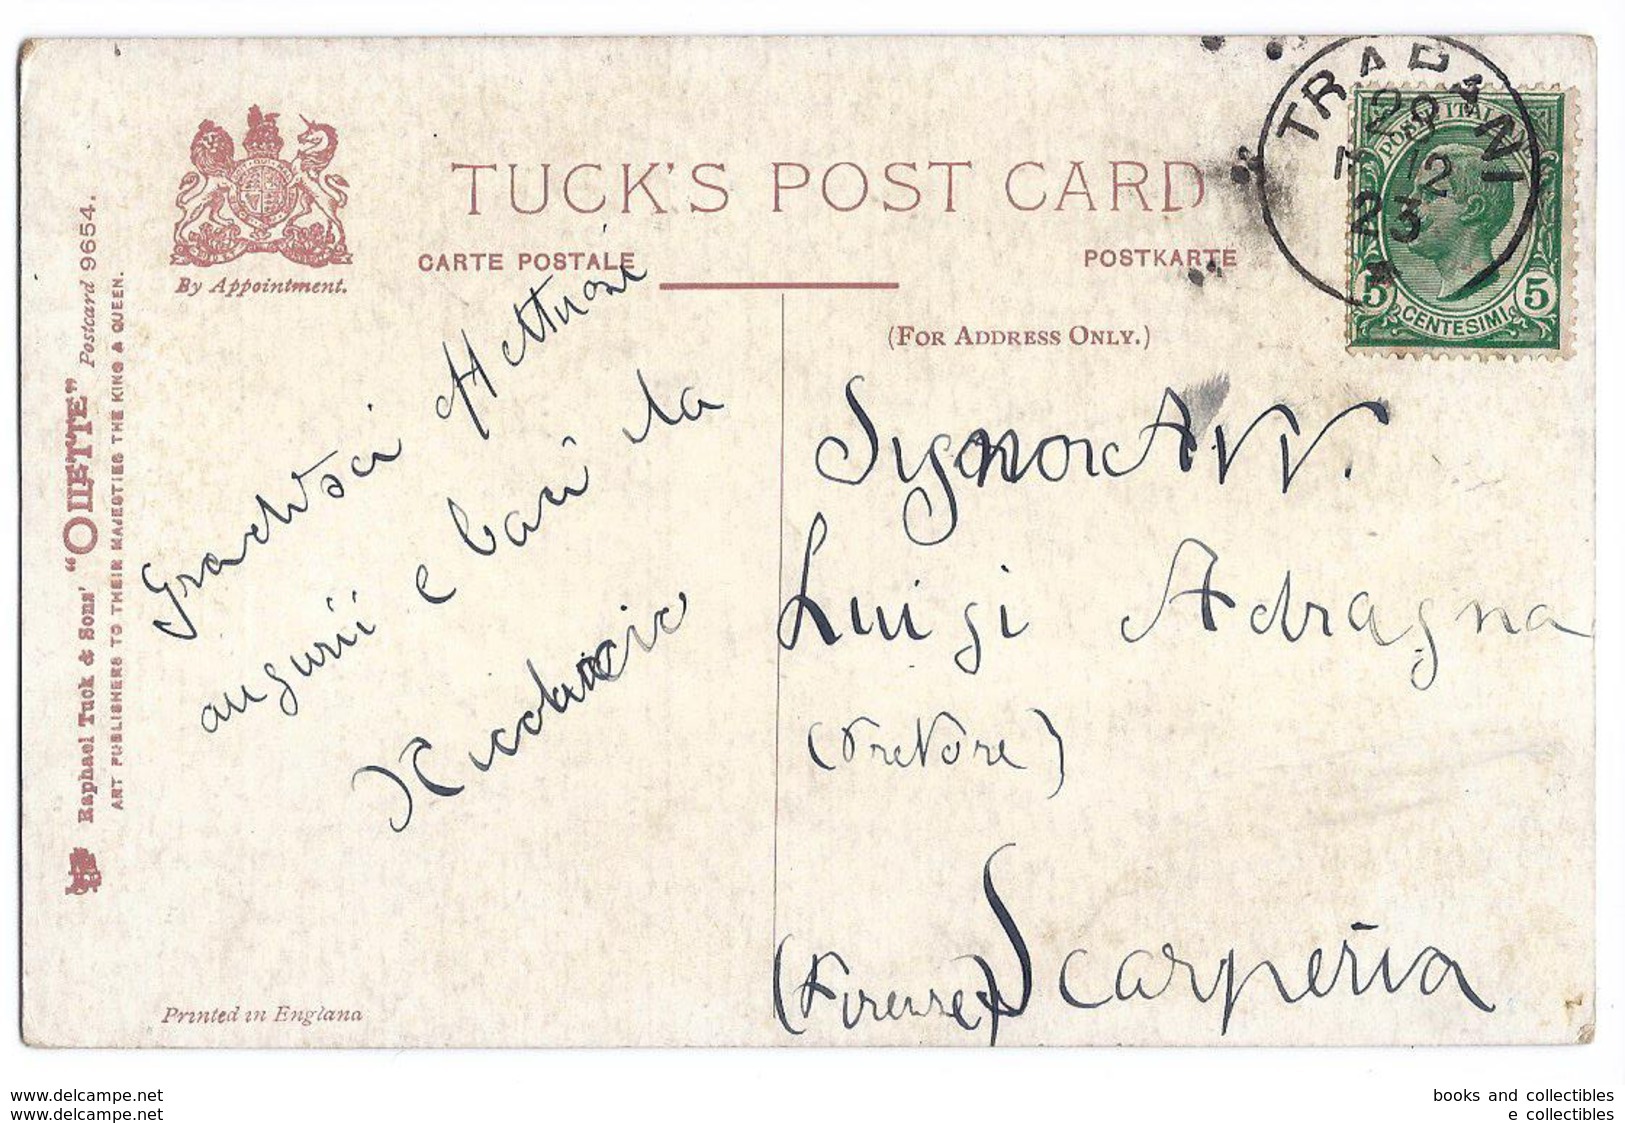 TUCK'S POST CARD
CARTE POSTALE
POSTKARTE
(FOR ADDRESS ONLY.)
By Appointment.
Raphael Tuck & Sons' "OILETTE" Postcard 9654.
ART PUBLISHERS TO THEIR MAJESTIES THE KING & QUEEN.
TRAPANI
12
23
POSTE ITALIANE
5 CENTESIMI 5
augurii e baci da
Signor Avv.
Luigi Adragna
(Pretore)
Scarperia
(Firenze)
Printed in England
books and collectibles
e collectibles
www.delcampe.net
www.delcampe.net